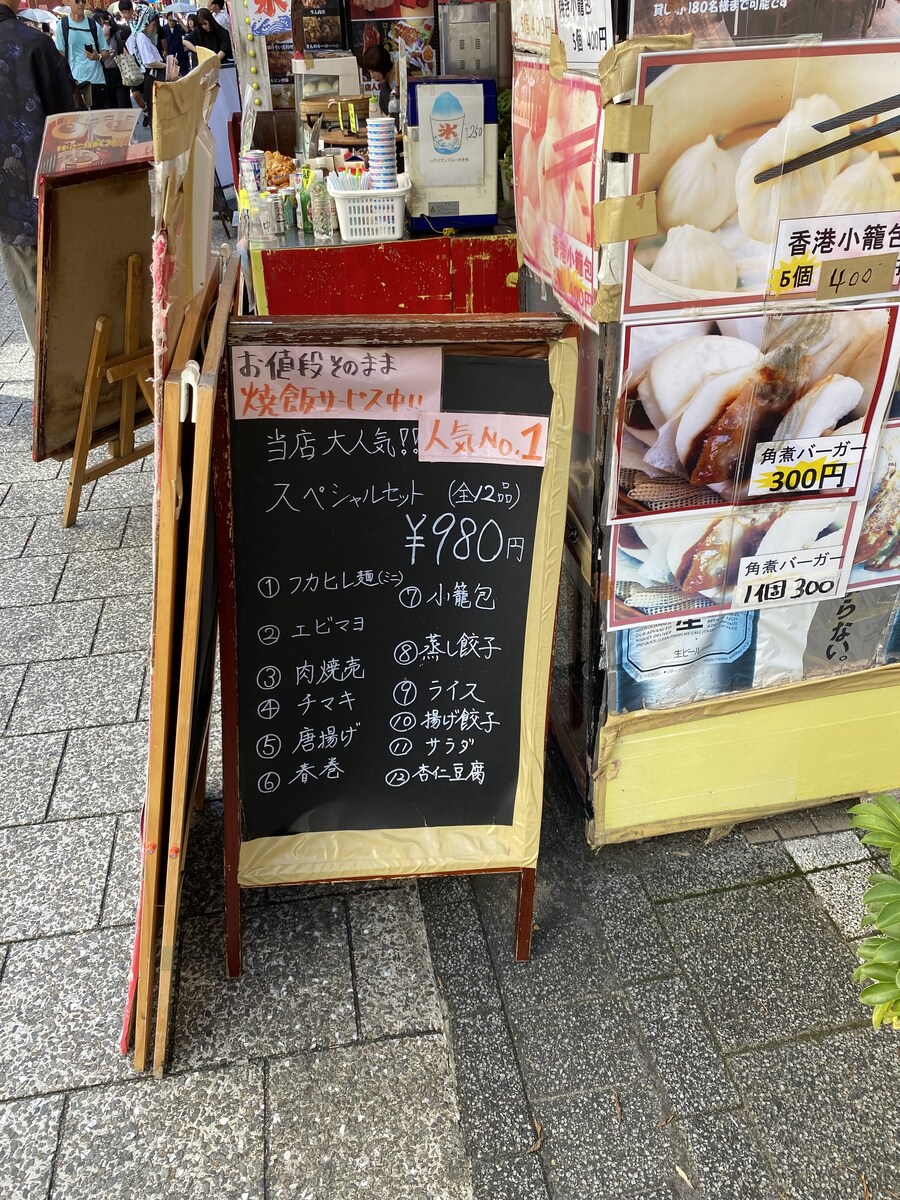 氷
氷
250
お値段そのまま
焼飯サービス中!!
当店大人気!!
人気No.1
スペシャルセット (全12品)
¥980円
① フカヒレ麺(ミニ)
② エビマヨ
③ 肉焼売
④ チマキ
⑤ 唐揚げ
⑥ 春巻
⑦ 小籠包
⑧ 蒸し餃子
⑨ ライス
⑩ 揚げ餃子
⑪ サラダ
⑫ 杏仁豆腐
5個 400円
香港小籠包
香港小籠包
5個 400円
角煮バーガー
300円
角煮バーガー
1個 300
生ビール
らない。